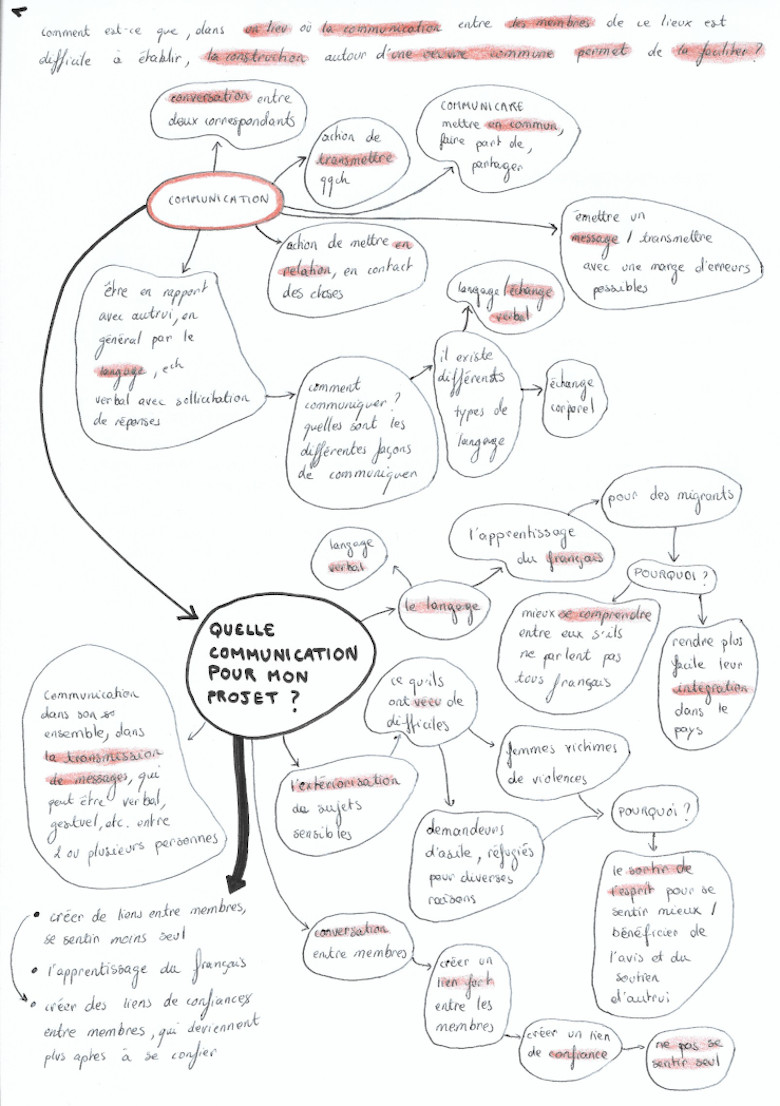 1
comment est-ce que, dans un lieu où la communication entre des membres de ce lieux est
difficile à établir, la construction autour d'une oeuvre commune permet de la faciliter?
conversation entre
deux correspondants
action de
transmettre
qqch
COMMUNICARE
mettre en commun,
faire part de,
partager
COMMUNICATION
émettre un
message / transmettre
avec une marge d'erreurs
possibles
action de mettre en
relation, en contact
des choses
être en rapport
avec autrui, en
général par le
langage, ech
verbal avec sollicitation
de réponses
langage/échange
verbal
il existe
différents
types de
langage
échange
corporel
comment
communiquer?
quelles sont les
différentes façons
de communiquer
pour des migrants
l'apprentissage
du français
langage
verbal
POURQUOI?
le langage
mieux se comprendre
entre eux s'ils
ne parlent pas
tous français
rendre plus
facile leur
intégration
dans le
pays
QUELLE
COMMUNICATION
POUR MON
PROJET?
ce qu'ils
ont vécu de
difficiles
communication
dans son
ensemble, dans
la transmission
de messages, qui
peut être verbal,
gestuel, etc. entre
2 ou plusieurs personnes
femmes victimes
de violences
l'extériorisation
de sujets
sensibles
POURQUOI?
demandeurs
d'asile, réfugiés
pour diverses
raisons
le sortir de
l'esprit pour se
sentir mieux /
bénéficier de
l'avis et du
soutien
d'autrui
• créer de liens entre membres,
se sentir moins seul
• l'apprentissage du français
• créer des liens de confiances
entre membres, qui deviennent
plus aptes à se confier
conversation
entre membres
créer un
lien fort
entre les
membres
créer un lien
de confiance
ne pas se
sentir seul